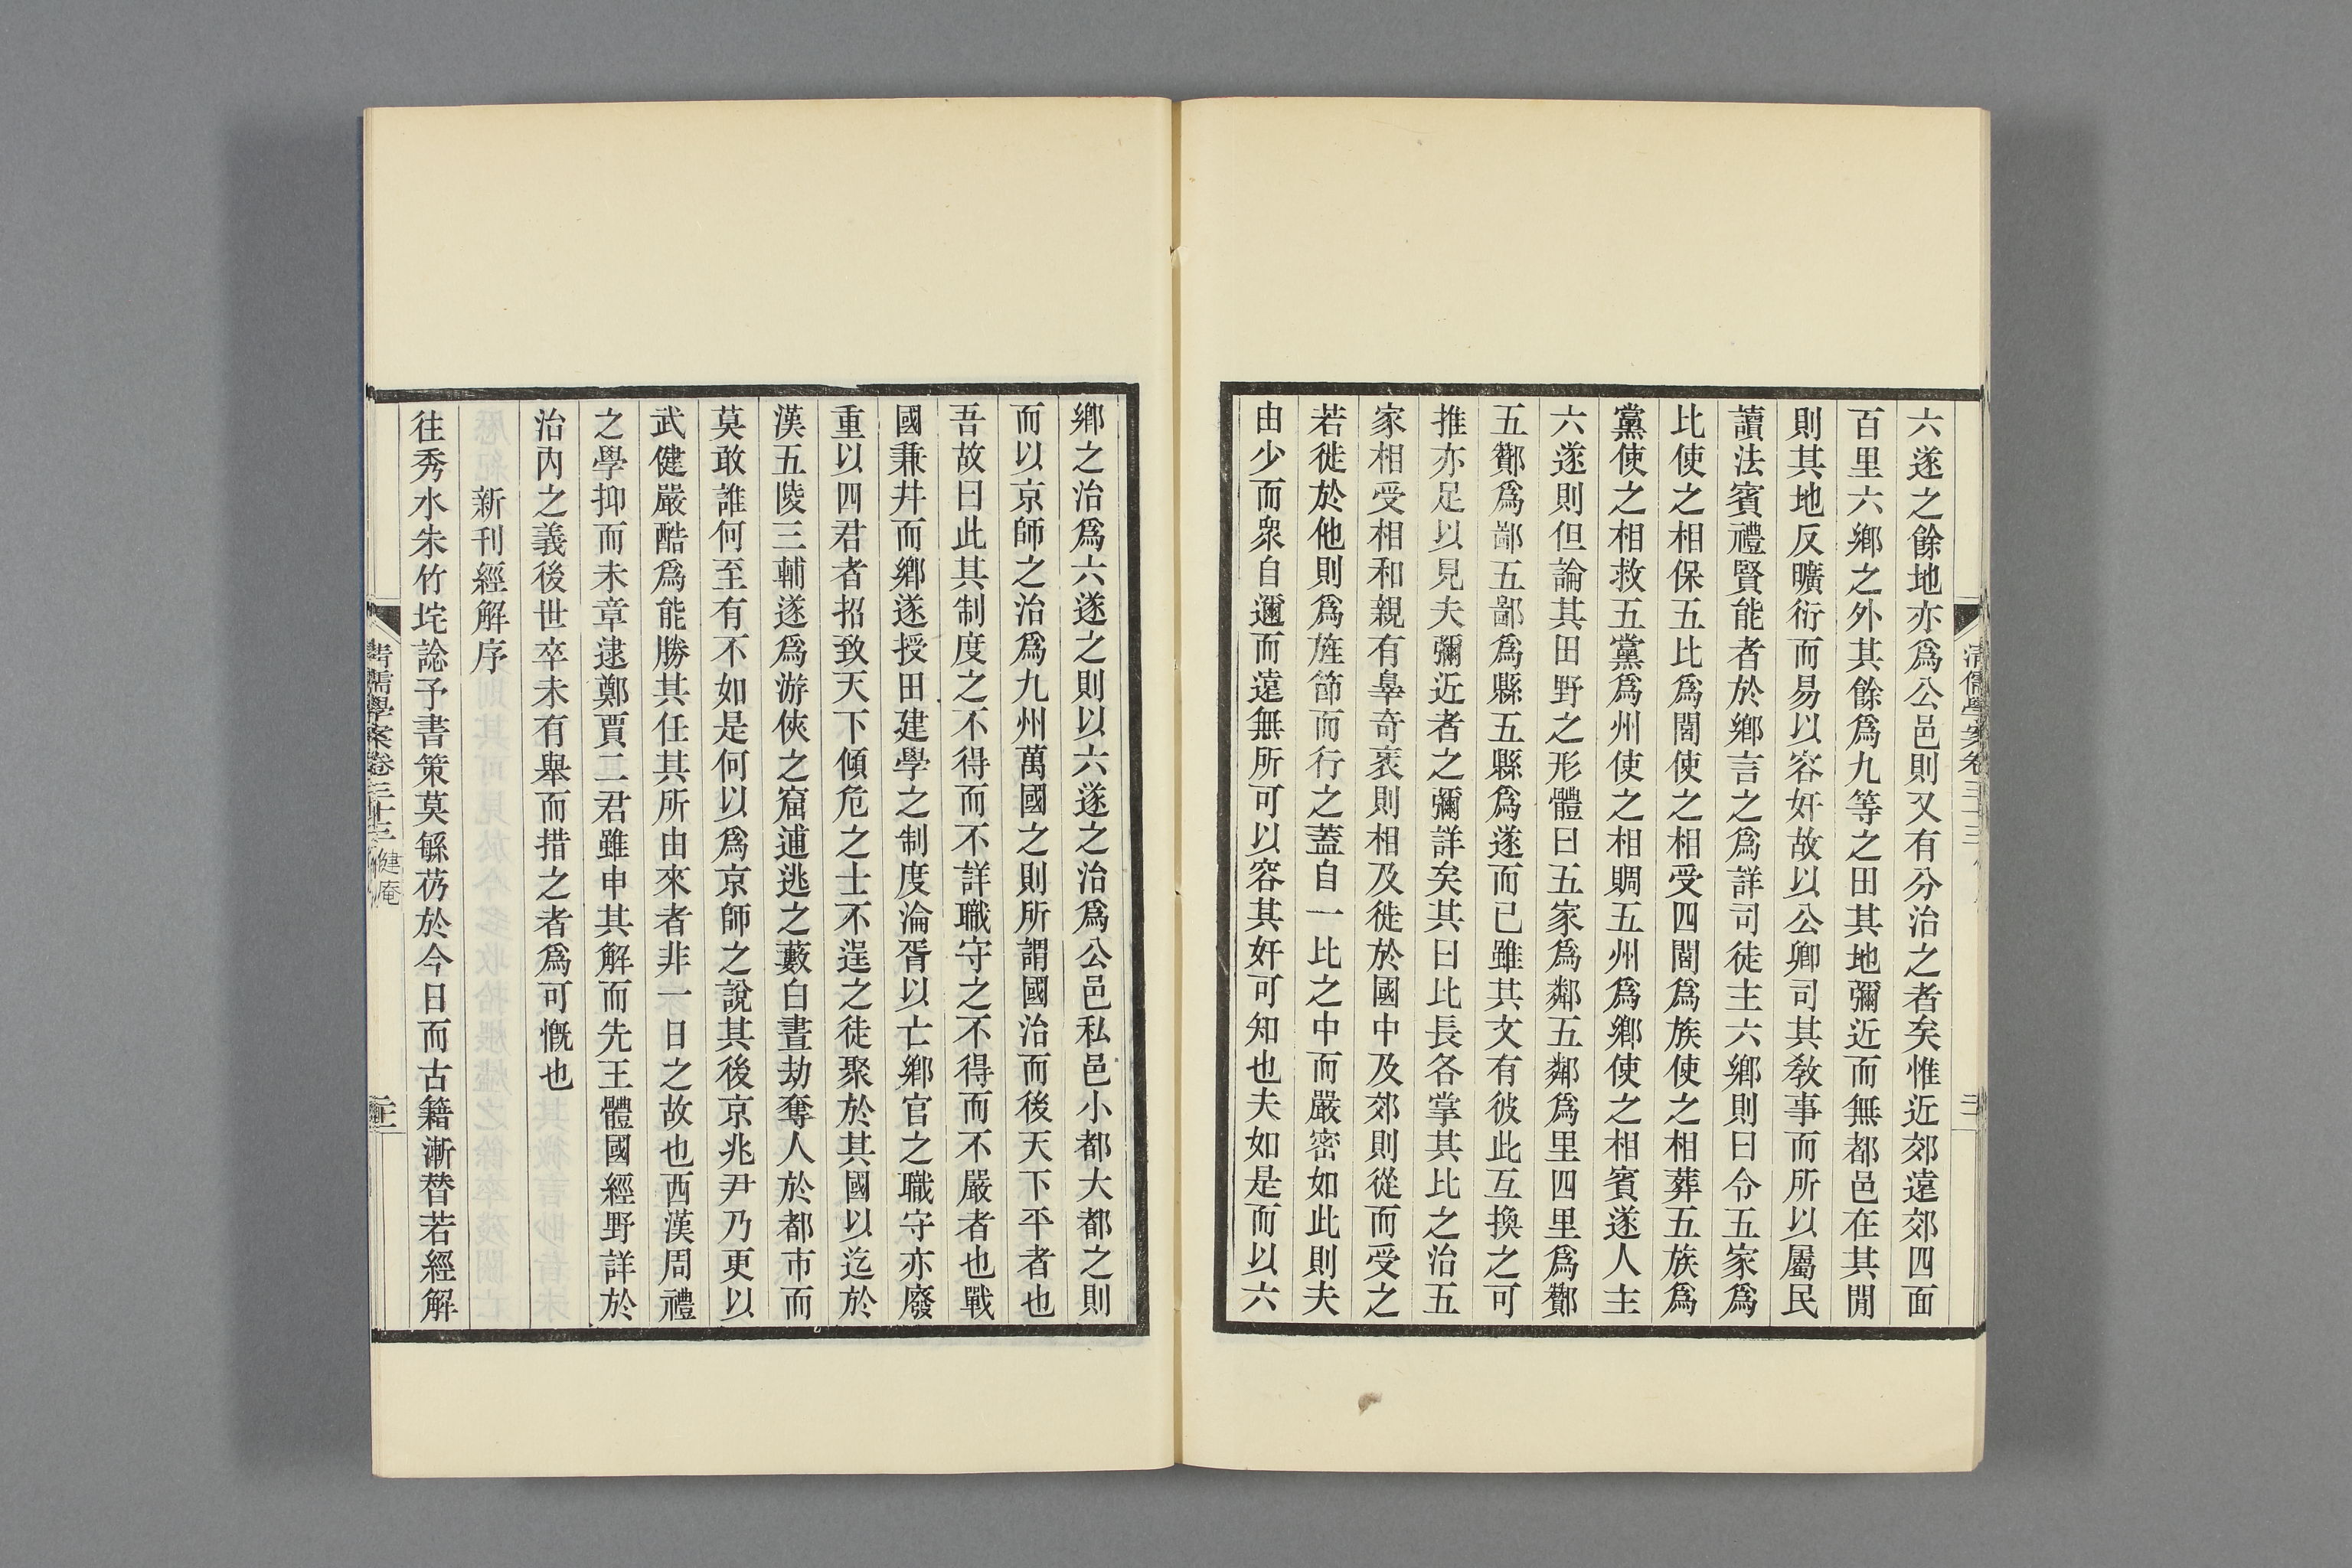 六遂之餘地亦爲公邑則又有分治之者矣惟近郊遠郊四面
百里六鄉之外其餘爲九等之田其地彌近而無都邑在其閒
則其地反曠衍而易以容奸故以公卿司其敎事而所以屬民
讀法賓禮賢能者於鄉言之爲詳司徒主六鄉則曰令五家爲
比使之相保五比爲閭使之相受四閭爲族使之相葬五族爲
黨使之相救五黨爲州使之相賙五州爲鄉使之相賓遂人主
六遂則但論其田野之形體曰五家爲鄰五鄰爲里四里爲酇
五酇爲鄙五鄙爲縣五縣爲遂而已雖其文有彼此互換之可
推亦足以見夫彌近者之彌詳矣其曰比長各掌其比之治五
家相受相和親有辠奇衺則相及徙於國中及郊則從而受之
若徙於他則爲旌節而行之蓋自一比之中而嚴密如此則夫
由少而衆自邇而遠無所可以容其奸可知也夫如是而以六
鄉之治爲六遂之則以六遂之治爲公邑私邑小都大都之則
而以京師之治爲九州萬國之則所謂國治而後天下平者也
吾故曰此其制度之不得而不詳職守之不得而不嚴者也戰
國兼井而鄉遂授田建學之制度淪胥以亡鄉官之職守亦廢
重以四君者招致天下傾危之士不逞之徒聚於其國以迄於
漢五陵三輔遂爲游俠之窟逋逃之藪白晝劫奪人於都市而
莫敢誰何至有不如是何以爲京師之說其後京兆尹乃更以
武健嚴酷爲能勝其任其所由來者非一日之故也西漢周禮
之學抑而未章逮鄭賈二君雖申其解而先王體國經野詳於
治內之義後世卒未有舉而措之者爲可慨也
新刊經解序
往秀水朱竹垞諗予書策莫緐芿於今日而古籍漸替若經解
清儒學案卷三十三 健庵